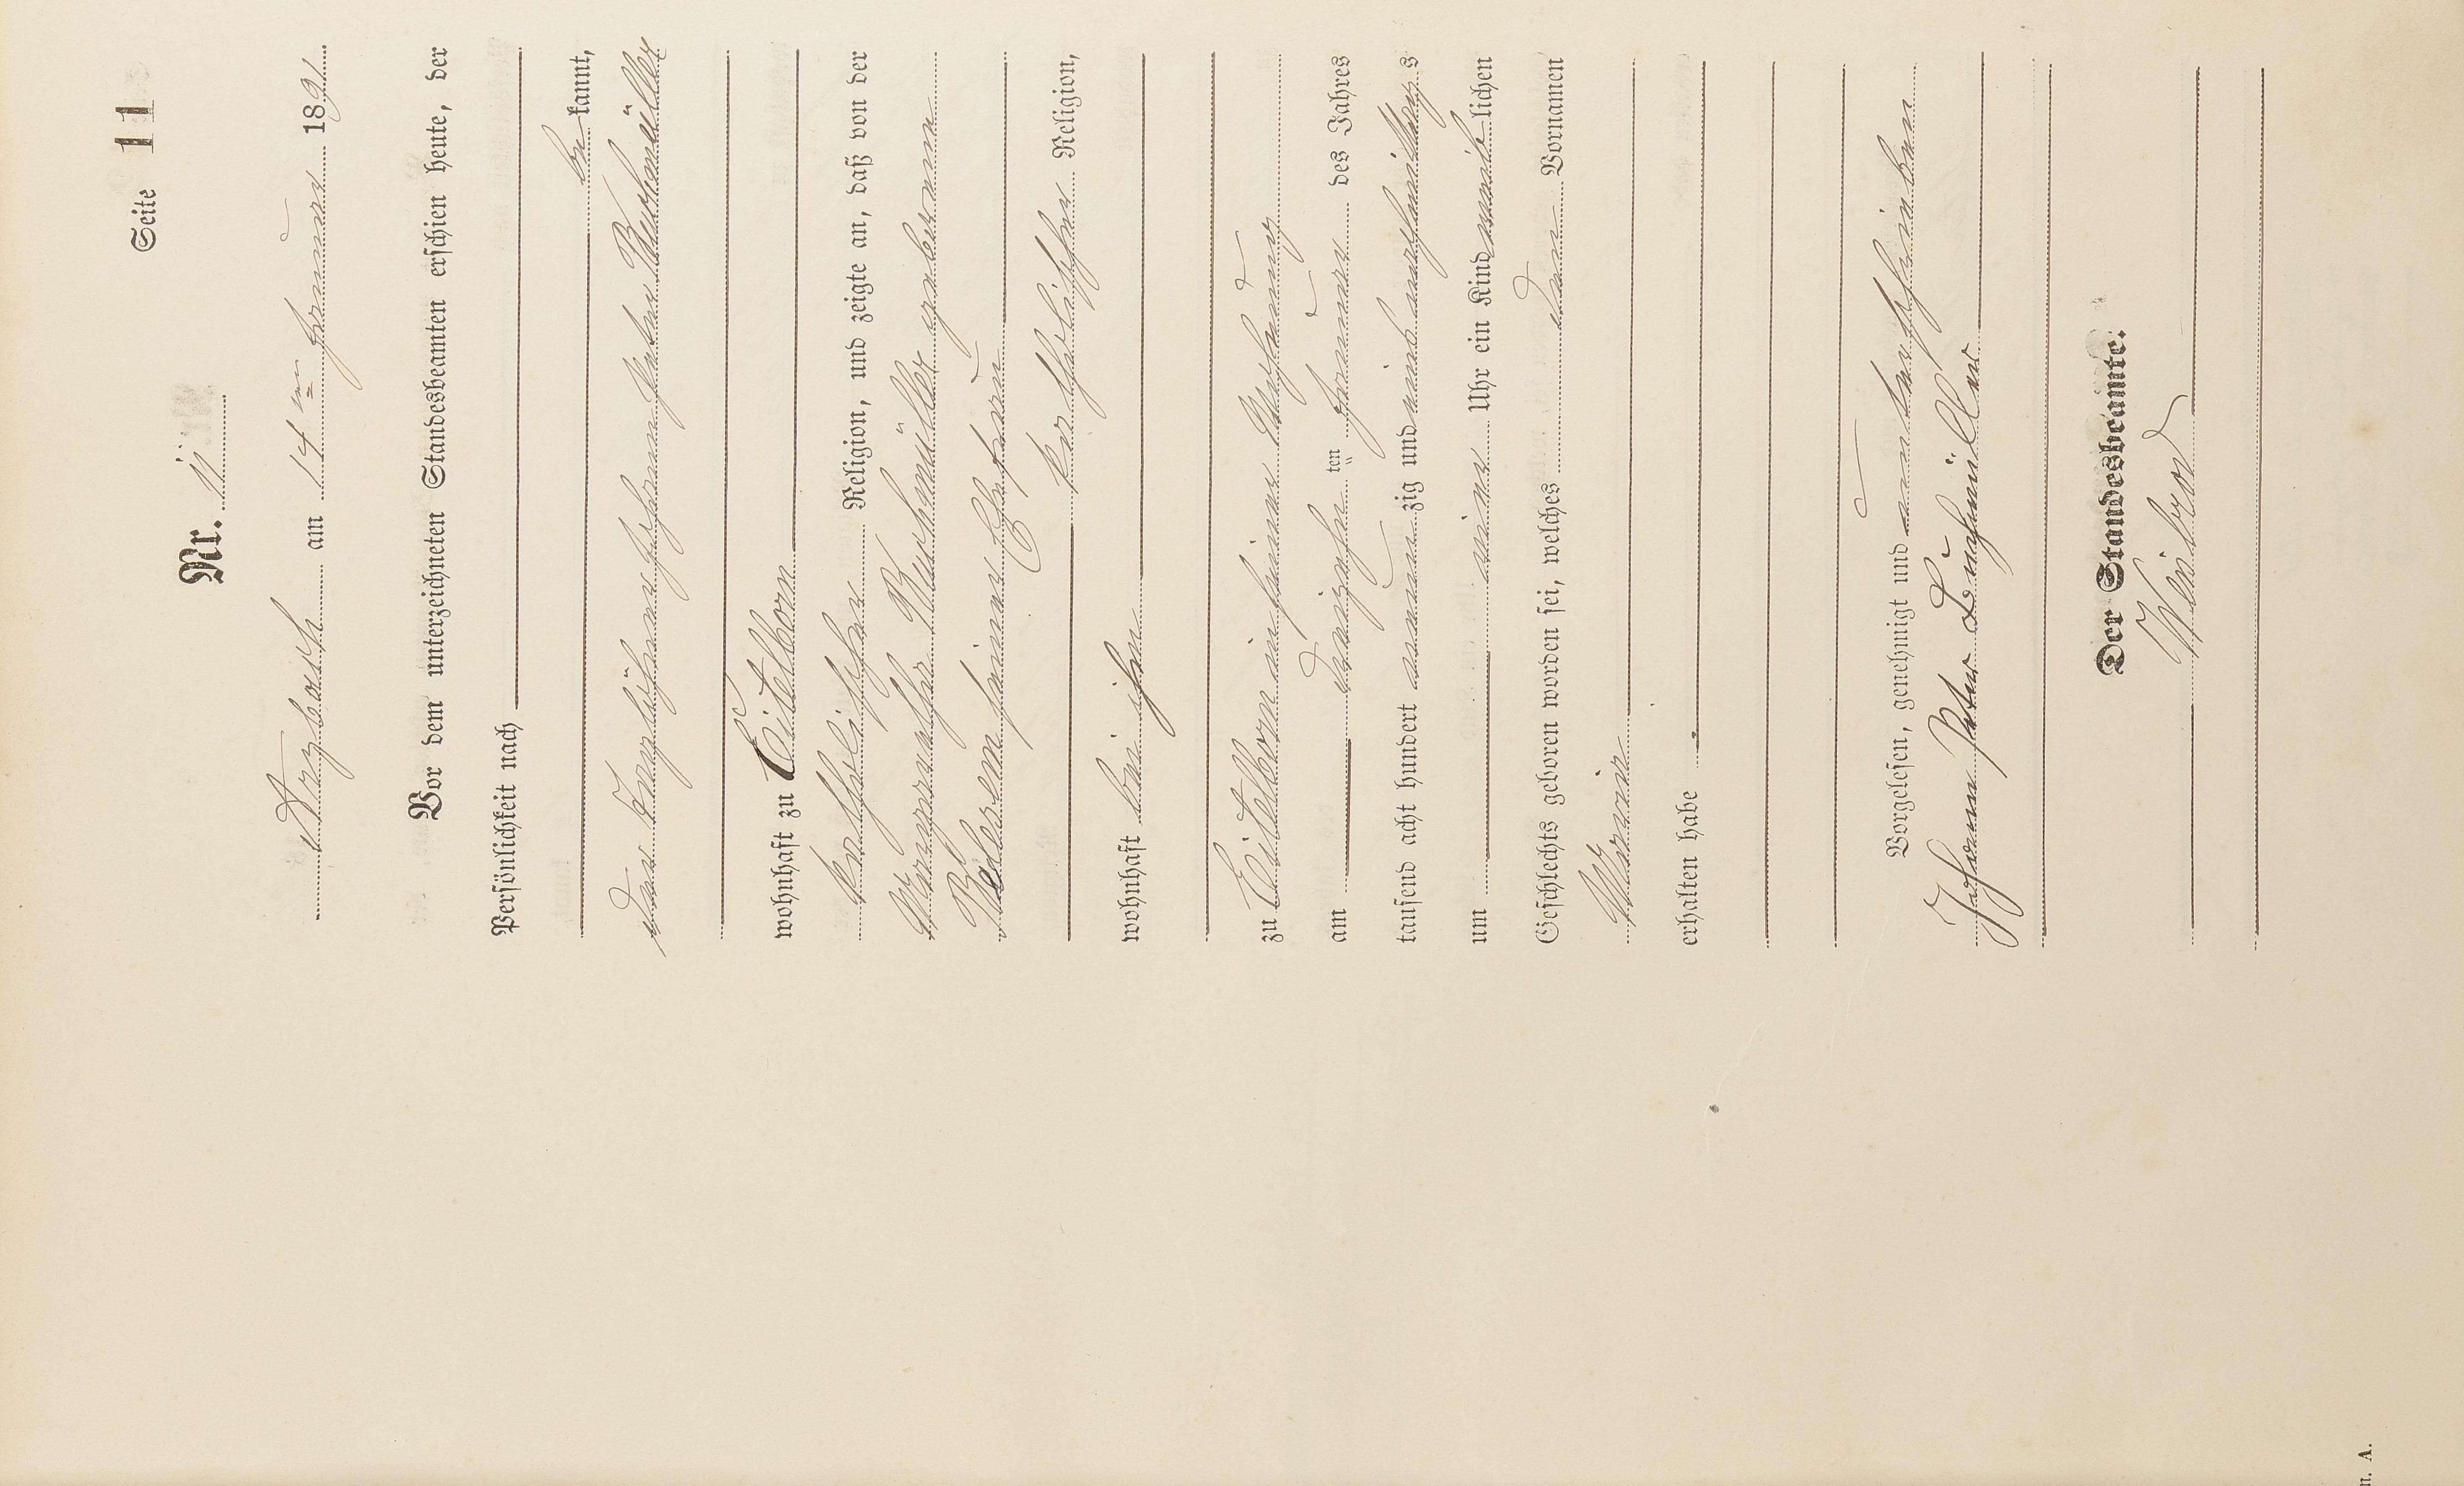 Seite 11
Nr. 11
Arzbach am 14ten Januar 1891
Vor dem unterzeichneten Standesbeamten erschien heute, der
Persönlichkeit nach
bekannt,
der Johann Peter Buchmüller
wohnhaft zu Eitelborn
katholischer Religion, und zeigte an, daß von der
Margaretha Buchmüller geborenen
seiner Ehefrau
katholischer Religion,
wohnhaft bei ihm
zu Eitelborn in seiner Wohnung
am dreizehn ten Januar des Jahres
tausend acht hundert neunzig und eins nachmittags
um Uhr ein Kind weiblichen
Geschlechts geboren worden sei, welches den Vornamen
Maria
erhalten habe
Vorgelesen, genehmigt und unterschrieben
Johann Peter Buchmüller
Der Standesbeamte.
n. A.